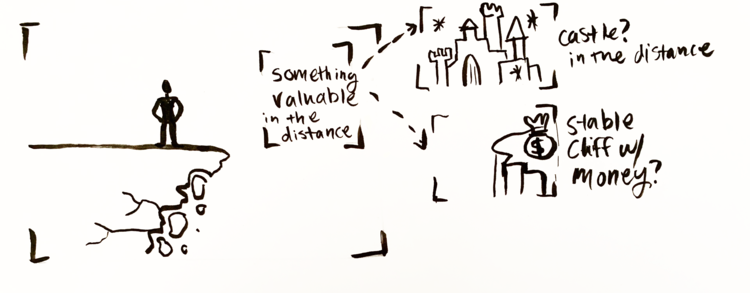 something
valuable
in the
distance
castle?
in the distance
$
stable
cliff w/
money?